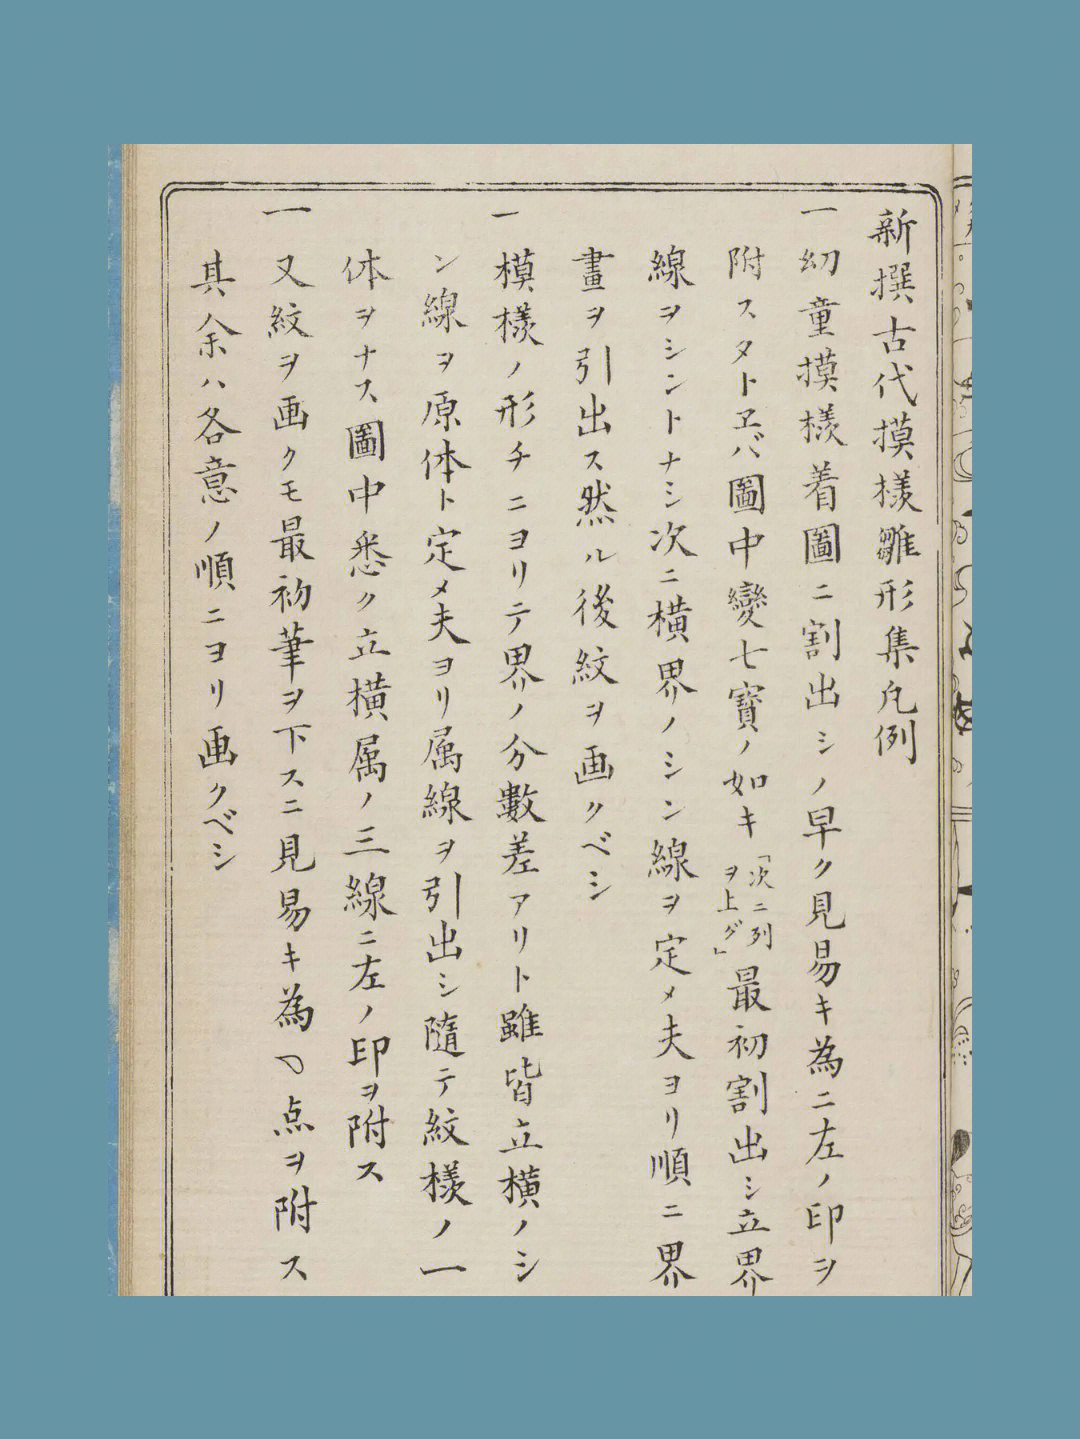 新撰古代摸樣雛形集凡例
一 幼童摸樣着圖ニ割出シノ早ク見易キ為ニ左ノ印ヲ
附スタトヱバ圖中變七寳ノ如キ「次ニ列ヲ上グ」最初割出シ立界
線ヲシントナシ次ニ横界ノシン線ヲ定メ夫ヨリ順ニ界
畫ヲ引出ス然ル後紋ヲ画クベシ
一 模樣ノ形チニヨリテ界ノ分數差アリト雖皆立横ノシ
ン線ヲ原体ト定メ夫ヨリ属線ヲ引出シ隨テ紋樣ノ一
体ヲナス圖中悉ク立横属ノ三線ニ左ノ印ヲ附ス
一 又紋ヲ画クモ最初筆ヲ下スニ見易キ為 点ヲ附ス
其余ハ各意ノ順ニヨリ画クベシ